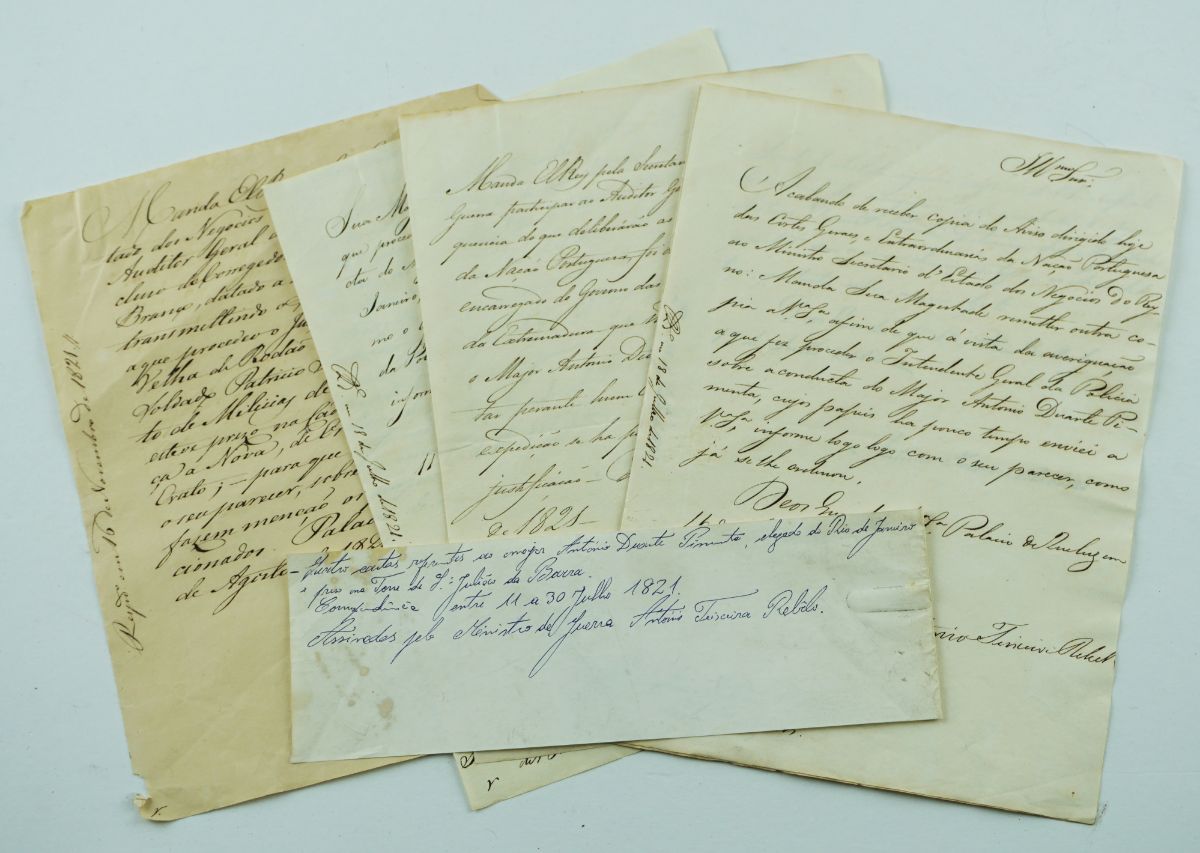 Manda El
tado dos Negocios
Auditor Geral
cluso do Corregedo
Branco, datado a
transmittindo a
a que procedeo o Ju
Velha de Rodão
Soldado Patricio
to de Milicias de
esteve prezo na
ça a Nova, de
Crato; – para que
o seu parecer, sobre
fazem menção, os
cionados. Palac
de Agosto
182
Respd.o em 16 de Novembro de 1821.
Sua Mag
que proced
tor do
Janeiro,
mo o
da Pol
inform
11
R em 11 de Julho de 1821.
Manda ElRey pela Secretar
Guerra participar ao Auditor Ge
quencia do que deliberárão as
da Nação Portugueza, foi o
encarregado do Governo das
da Extremadura que
o Major Antonio Du
tar perante hum
expedição se ha p
justificação –
de 1821 –
R em 13 de Julho de 1821.
Ill.mo Snr.
Acabando de receber copia do Aviso dirigido hoje
das Cortes Geraes, e Extraordinarias da Nação Portugueza
ao Ministro Secretario d'Estado dos Negocios do Rey-
no: Manda Sua Magestade remetter outra co-
pia a V.ª S.ª afim de que á vista da averiguação
a que fez proceder o Intendente Geral da Policia
sobre a conducta do Major Antonio Duarte Pi-
menta, cujos papeis ha pouco tempo enviei a
V.ª S.ª informe logo logo com o seu parecer, como
já se lhe ordenou.
Deos Gu S.ª Palacio de Queluz em
11
nio Teixeira Rebello
Quatro cartas referentes ao major António Duarte Pimenta, chegado do Rio de Janeiro
e preso na Torre de S. Julião da Barra.
Correspondência entre 11 a 30 Julho 1821.
Assinadas pelo Ministro de Guerra António Teixeira Rebêlo.